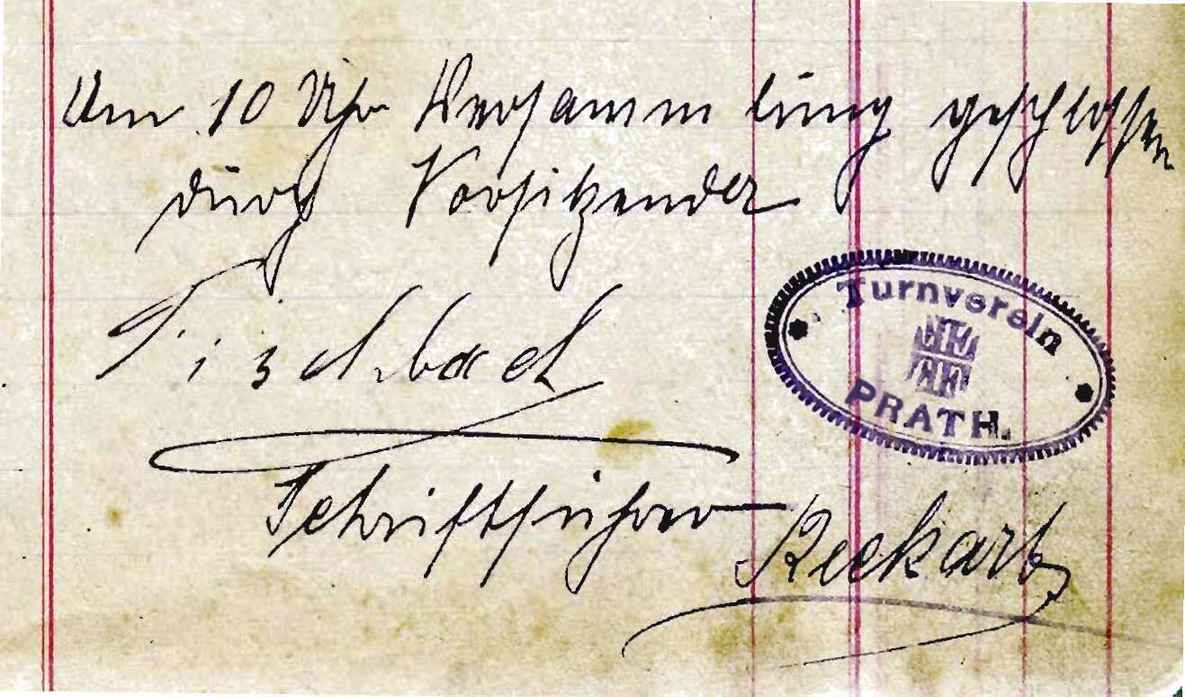 Um 10 Uhr Versammlung geschlossen
durch Vorsitzender
Fischbach
Turnverein
PRATH.
Schriftführer